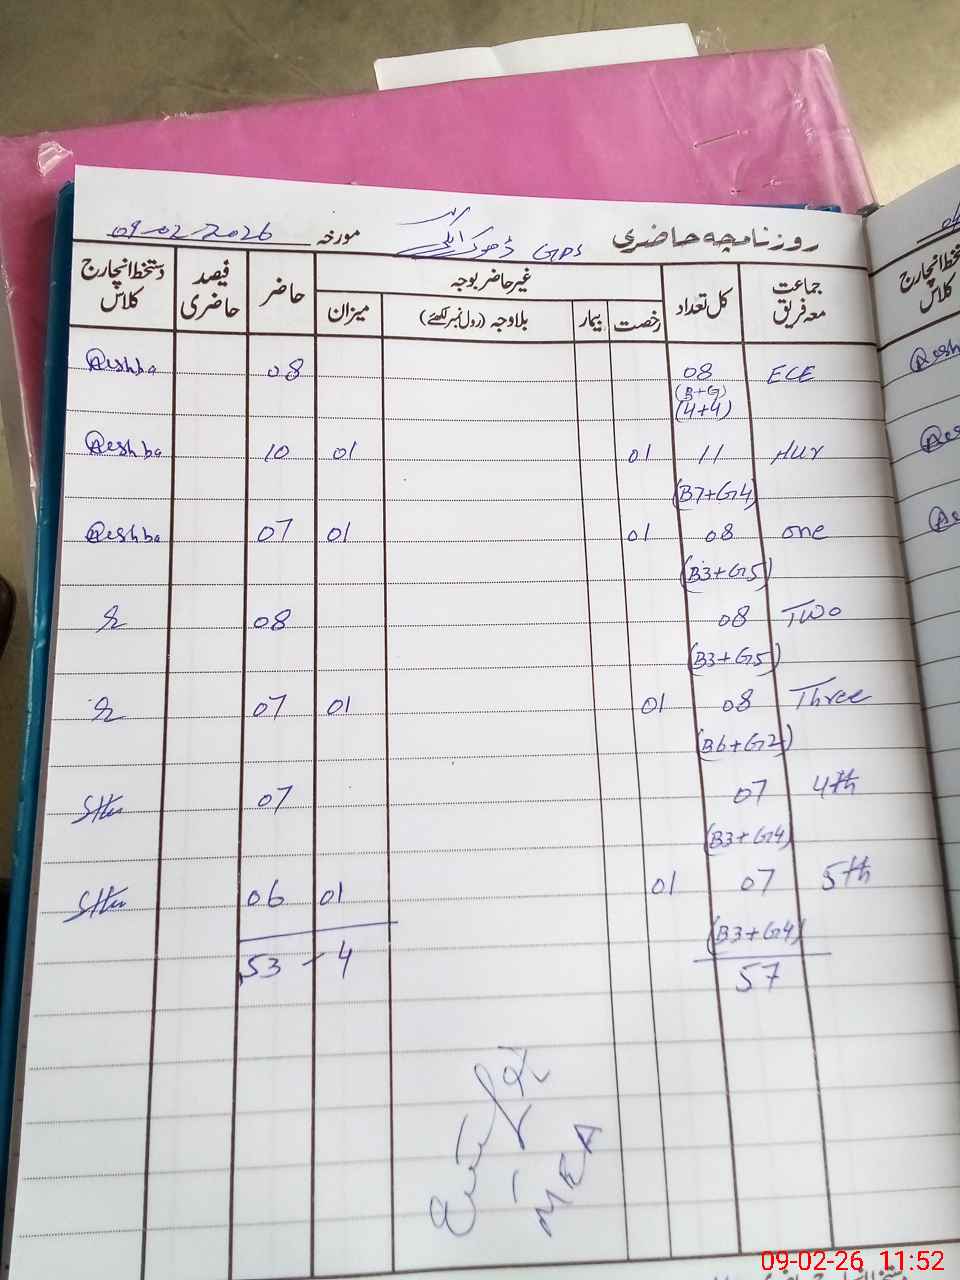 روزنامچہ حاضری GPS ڈھوک مورخہ 09-02-2026
جماعت معہ فریق کل تعداد غیر حاضر بوجہ حاضر فیصد حاضری دستخط انچارج کلاس
رخصت بیمار بلاوجہ (رول نمبر لکھئے) میزان
ECE 08 08 Aeshba
(B+G)
(4+4)
Nur 11 01 01 10 Aeshba
(B7+G4)
one 08 01 01 07 Aeshba
(B3+G5)
Two 08 08
(B3+G5)
Three 08 01 01 07
(B6+G2)
4th 07 07
(B3+G4)
5th 07 01 01 06
(B3+G4)
57 4 - 53
MEA
دستخط انچارج کلاس
09-02-26 11:52